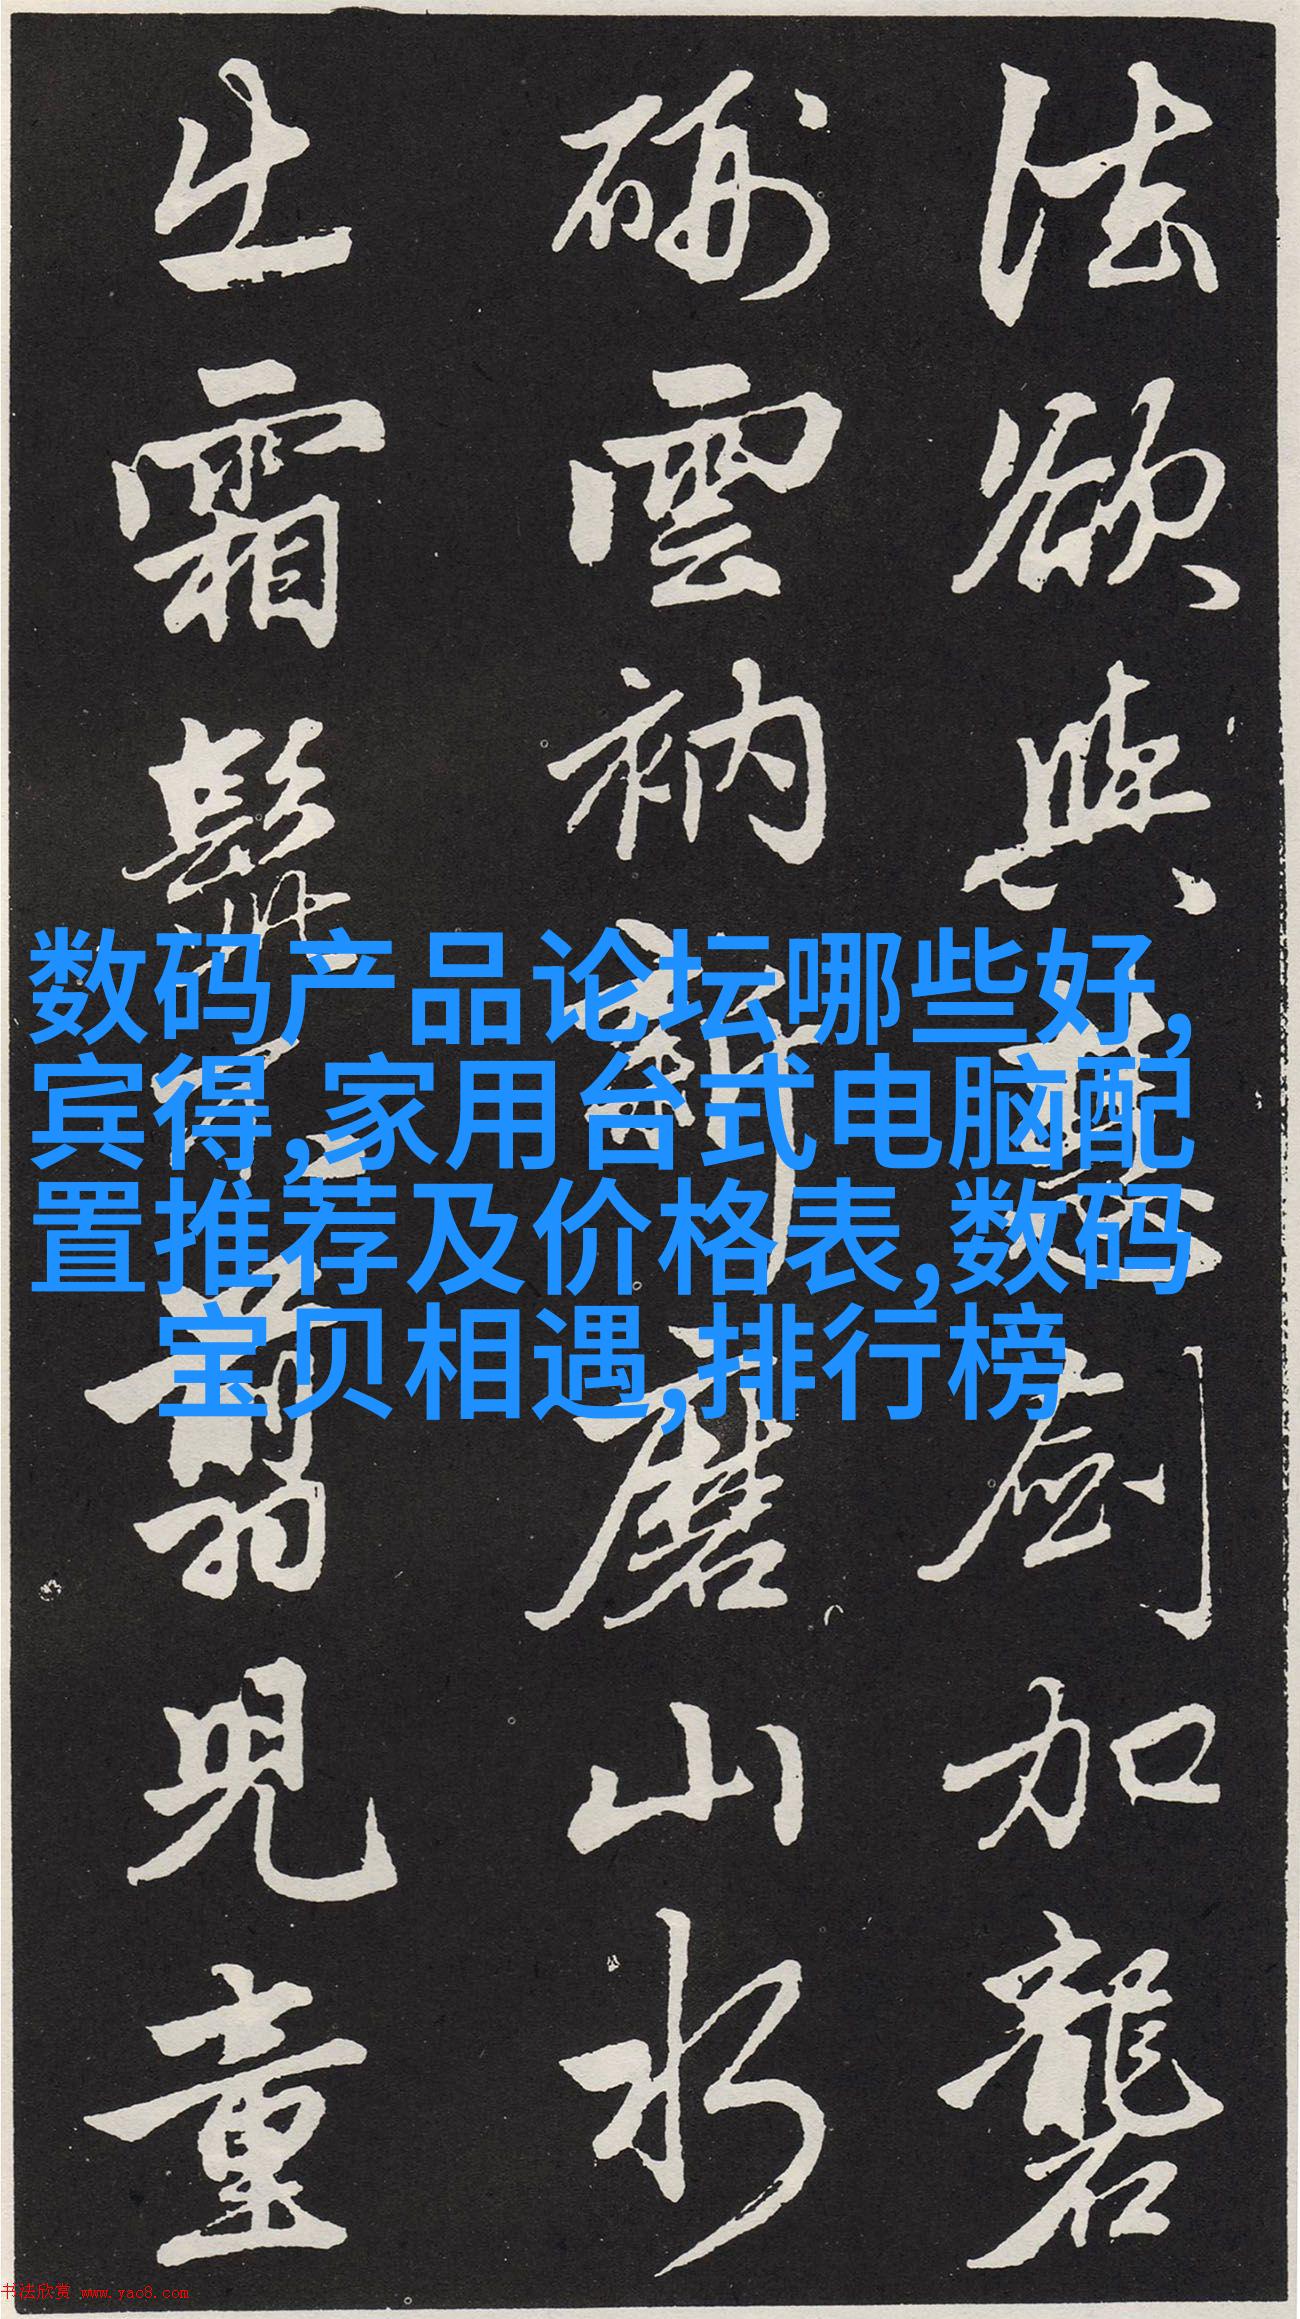 法欲與慧劍加礱
硎雲衲新磨山水
出霜髭不翦兒童
数码产品论坛哪些好,
宾得,家用台式电脑配
置推荐及价格表,数码
宝贝相遇,排行榜
书法欣赏 www.yac8.com